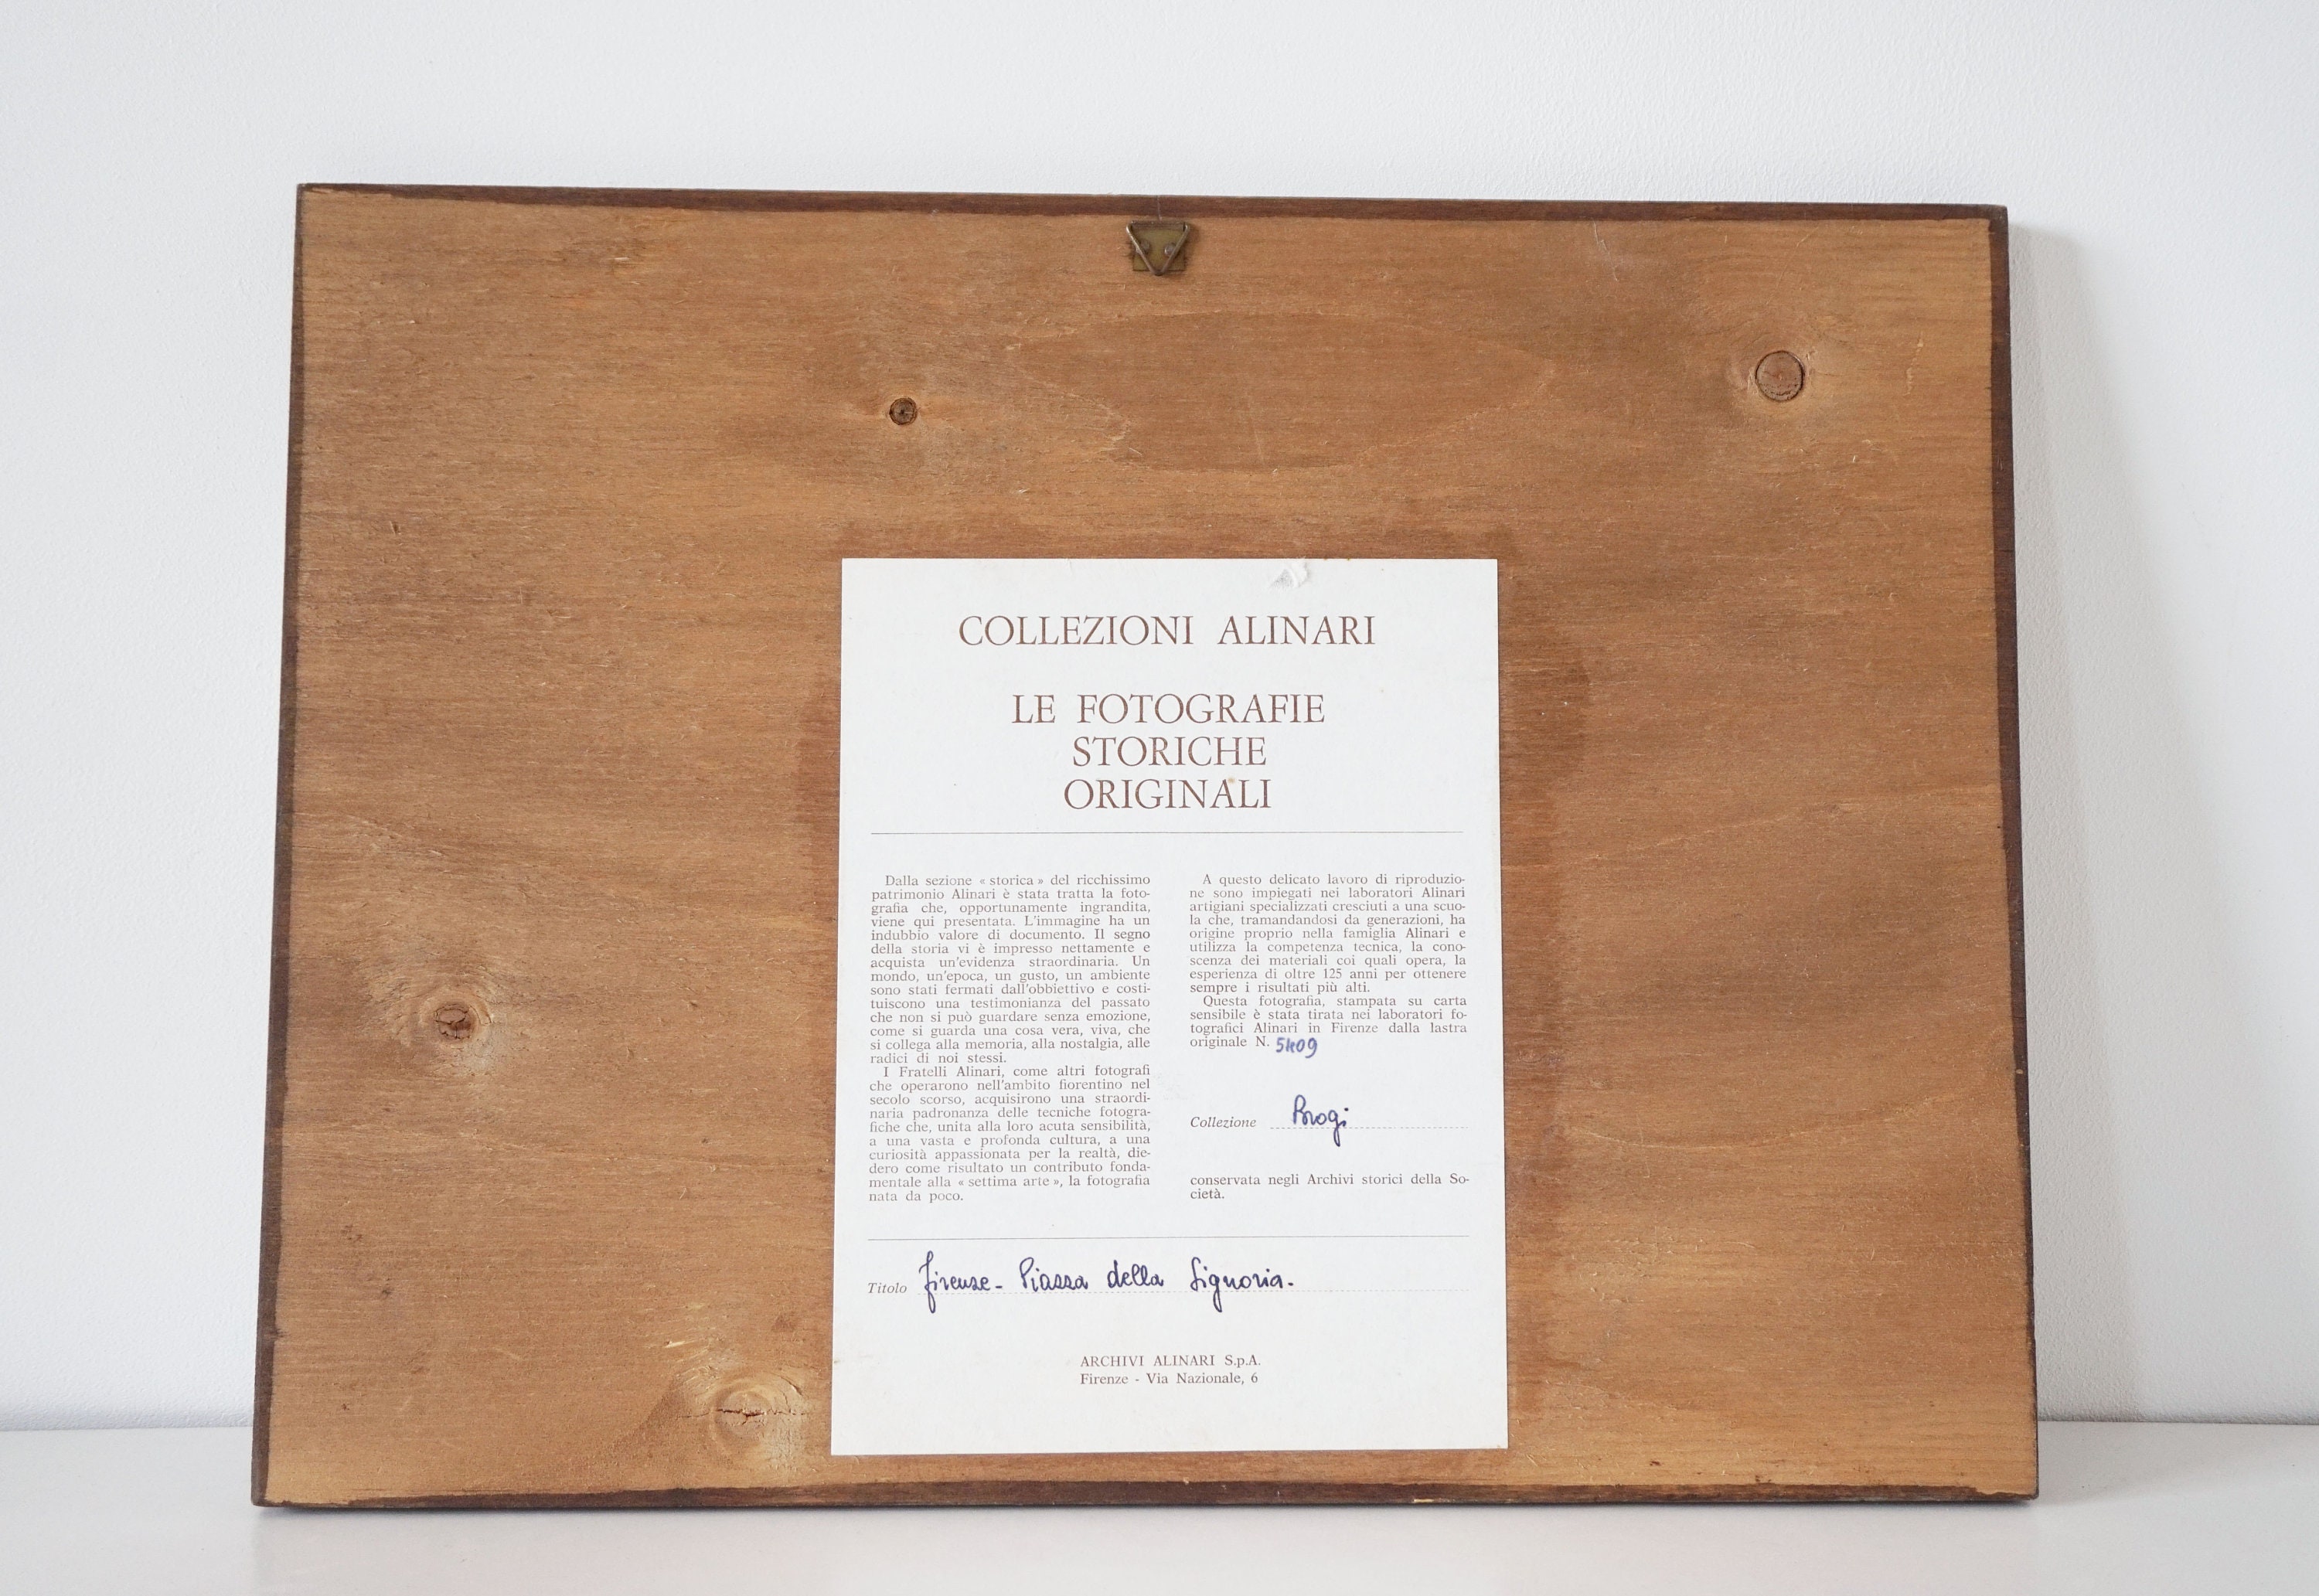 COLLEZIONI ALINARI
LE FOTOGRAFIE
STORICHE
ORIGINALI
Dalla sezione « storica » del ricchissimo
patrimonio Alinari è stata tratta la foto-
grafia che, opportunamente ingrandita,
viene qui presentata. L'immagine ha un
indubbio valore di documento. Il segno
della storia vi è impresso nettamente e
acquista un'evidenza straordinaria. Un
mondo, un'epoca, un gusto, un ambiente
sono stati fermati dall'obbiettivo e costi-
tuiscono una testimonianza del passato
che non si può guardare senza emozione,
come si guarda una cosa vera, viva, che
si collega alla memoria, alla nostalgia, alle
radici di noi stessi.
I Fratelli Alinari, come altri fotografi
che operarono nell'ambito fiorentino nel
secolo scorso, acquisirono una straordi-
naria padronanza delle tecniche fotogra-
fiche che, unita alla loro acuta sensibilità,
a una vasta e profonda cultura, a una
curiosità appassionata per la realtà, die-
dero come risultato un contributo fonda-
mentale alla « settima arte », la fotografia
nata da poco.
A questo delicato lavoro di riproduzio-
ne sono impiegati nei laboratori Alinari
artigiani specializzati cresciuti a una scuo-
la che, tramandandosi da generazioni, ha
origine proprio nella famiglia Alinari e
utilizza la competenza tecnica, la cono-
scenza dei materiali coi quali opera, la
esperienza di oltre 125 anni per ottenere
sempre i risultati più alti.
Questa fotografia, stampata su carta
sensibile è stata tirata nei laboratori fo-
tografici Alinari in Firenze dalla lastra
originale N. 5409
Collezione Brogi
conservata negli Archivi storici della So-
cietà.
Titolo Firenze - Piazza della Signoria.
ARCHIVI ALINARI S.p.A.
Firenze - Via Nazionale, 6